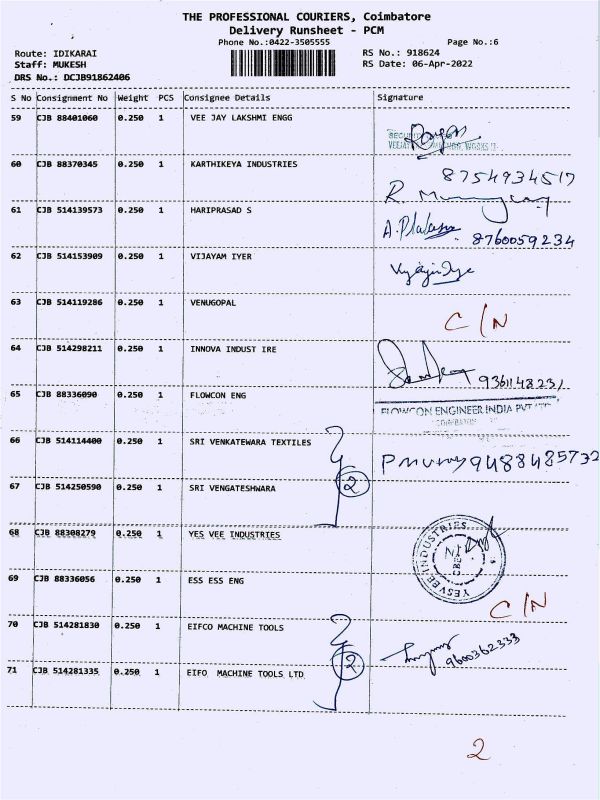 THE PROFESSIONAL COURIERS, Coimbatore
Delivery Runsheet - PCM
Phone No.:0422-3505555 Page No.:6
Route: IDIKARAI RS No.: 918624
Staff: MUKESH RS Date: 06-Apr-2022
DRS No.: DCJB91862406
S No Consignment No Weight PCS Consignee Details Signature
59 CJB 88401060 0.250 1 VEE JAY LAKSHMI ENGG
60 CJB 88370345 0.250 1 KARTHIKEYA INDUSTRIES 8754934517
R
61 CJB 514139573 0.250 1 HARIPRASAD S A. 8760059234
62 CJB 514153909 0.250 1 VIJAYAM IYER
63 CJB 514119286 0.250 1 VENUGOPAL C/N
64 CJB 514298211 0.250 1 INNOVA INDUST IRE 9361148231
65 CJB 88336090 0.250 1 FLOWCON ENG FLOWCON ENGINEER INDIA PVT
66 CJB 514114400 0.250 1 SRI VENKATEWARA TEXTILES 9488485732
67 CJB 514250590 0.250 1 SRI VENGATESHWARA 2
68 CJB 88308279 0.250 1 YES VEE INDUSTRIES YESVEE INDUSTRIES
69 CJB 88336056 0.250 1 ESS ESS ENG C/N
70 CJB 514281830 0.250 1 EIFCO MACHINE TOOLS 2 9600362333
71 CJB 514281335 0.250 1 EIFO MACHINE TOOLS LTD
2